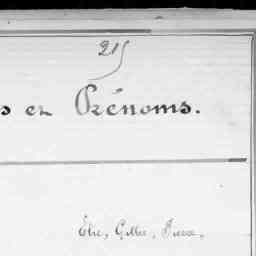 215
s et Prénoms.
Elie, Gilles, Pierre,